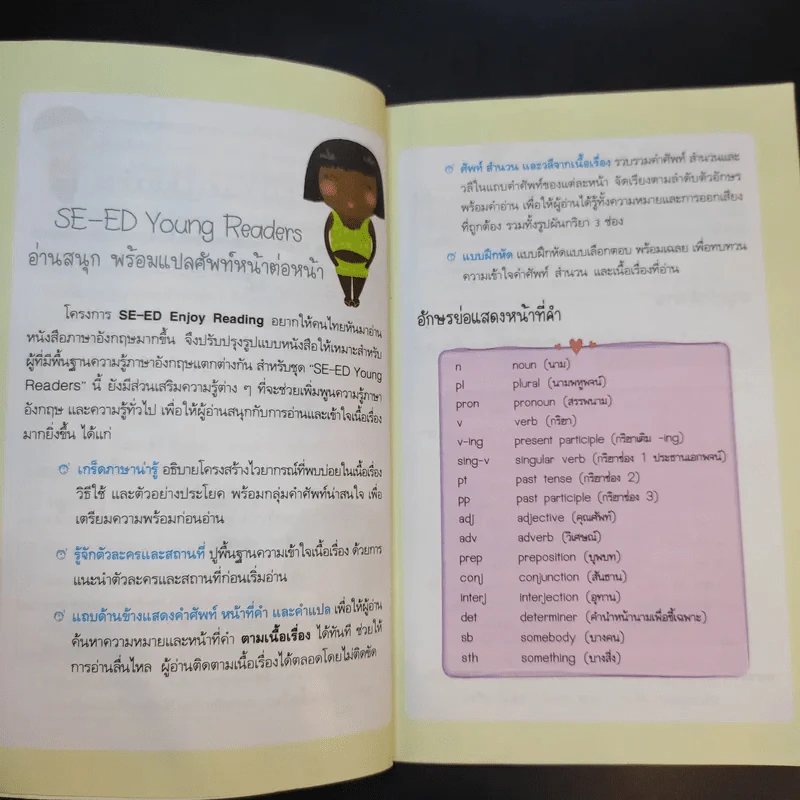 SE-ED Young Readers
อ่านสนุก พร้อมแปลศัพท์หน้าต่อหน้า
โครงการ SE-ED Enjoy Reading อยากให้คนไทยหันมาอ่าน
หนังสือภาษาอังกฤษมากขึ้น จึงปรับปรุงรูปแบบหนังสือให้เหมาะสำหรับ
ผู้ที่มีพื้นฐานความรู้ภาษาอังกฤษแตกต่างกัน สำหรับชุด "SE-ED Young
Readers" นี้ ยังมีส่วนเสริมความรู้ต่าง ๆ ที่จะช่วยเพิ่มพูนความรู้ภาษา
อังกฤษ และความรู้ทั่วไป เพื่อให้ผู้อ่านสนุกกับการอ่านและเข้าใจเนื้อเรื่อง
มากยิ่งขึ้น ได้แก่
เกร็ดภาษาน่ารู้ อธิบายโครงสร้างไวยากรณ์ที่พบบ่อยในเนื้อเรื่อง
วิธีใช้ และตัวอย่างประโยค พร้อมกลุ่มคำศัพท์น่าสนใจ เพื่อ
เตรียมความพร้อมก่อนอ่าน
รู้จักตัวละครและสถานที่ ปูพื้นฐานความเข้าใจเนื้อเรื่อง ด้วยการ
แนะนำตัวละครและสถานที่ก่อนเริ่มอ่าน
แถบด้านข้างแสดงคำศัพท์ หน้าที่คำ และคำแปล เพื่อให้ผู้อ่าน
ค้นหาความหมายและหน้าที่คำ ตามเนื้อเรื่อง ได้ทันที ช่วยให้
การอ่านลื่นไหล ผู้อ่านติดตามเนื้อเรื่องได้ตลอดโดยไม่ติดขัด
ศัพท์ สำนวน และวลีจากเนื้อเรื่อง รวบรวมคำศัพท์ สำนวนและ
วลีในแถบคำศัพท์ของแต่ละหน้า จัดเรียงตามลำดับตัวอักษร
พร้อมคำอ่าน เพื่อให้ผู้อ่านได้รู้ทั้งความหมายและการออกเสียง
ที่ถูกต้อง รวมทั้งรูปผันกริยา 3 ช่อง
แบบฝึกหัด แบบฝึกหัดแบบเลือกตอบ พร้อมเฉลย เพื่อทบทวน
ความเข้าใจคำศัพท์ สำนวน และเนื้อเรื่องที่อ่าน
อักษรย่อแสดงหน้าที่คำ
n noun (นาม)
pl plural (นามพหูพจน์)
pron pronoun (สรรพนาม)
v verb (กริยา)
v-ing present participle (กริยาเติม -ing)
sing-v singular verb (กริยาช่อง 1 ประธานเอกพจน์)
pt past tense (กริยาช่อง 2)
pp past participle (กริยาช่อง 3)
adj adjective (คุณศัพท์)
adv adverb (วิเศษณ์)
prep preposition (บุพบท)
conj conjunction (สันธาน)
interj interjection (อุทาน)
det determiner (คำนำหน้านามเพื่อชี้เฉพาะ)
sb somebody (บางคน)
sth something (บางสิ่ง)